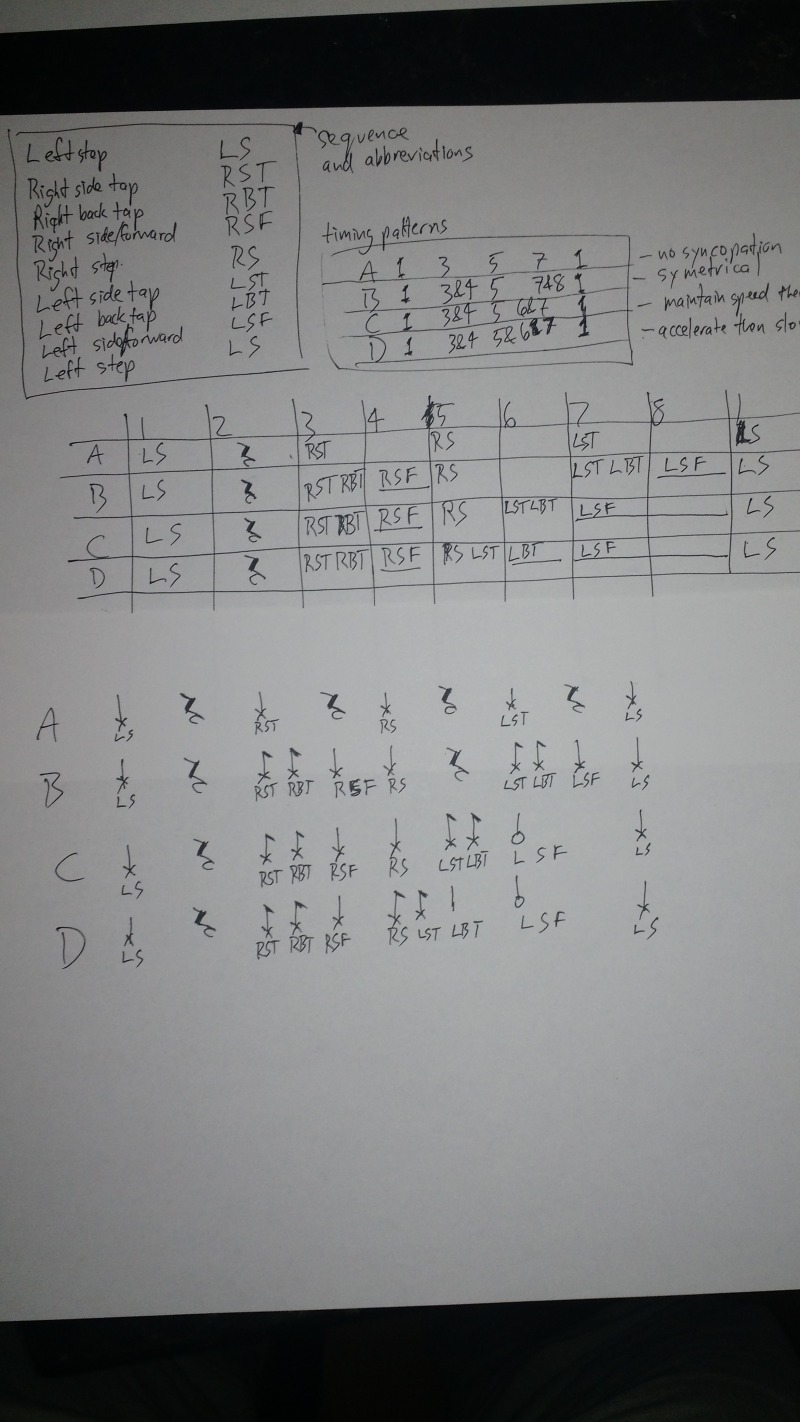 Left step LS
Right side tap RST
Right back tap RBT
Right side/forward RSF
Right step RS
Left side tap LST
Left back tap LBT
Left side/forward LSF
Left step LS
sequence
and abbreviations
timing patterns
A 1 3 5 7 1 - no syncopation
B 1 3&4 5 7&8 1 - symetrical
C 1 3&4 5 6&7 1 - maintain speed the
D 1 3&4 5&6&7 1 - accelerate then slo
1 2 3 4 5 6 7 8 1
A LS 𝄽 RST RS LST LS
B LS 𝄽 RST RBT RSF RS LST LBT LSF LS
C LS 𝄽 RST RBT RSF RS LST LBT LSF LS
D LS 𝄽 RST RBT RSF RS LST LBT LSF LS
A LS RST RS LST LS
B LS RST RBT RSF RS LST LBT LSF LS
C LS RST RBT RSF RS LST LBT LSF LS
D LS RST RBT RSF RS LST LBT LSF LS